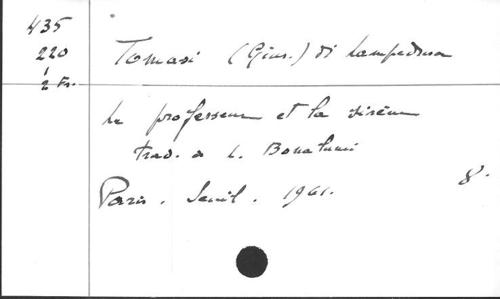 435
220
1/2 Fr.
Tomasi (Gius.) di Lampedusa
Le professeur et la sirène
trad. de L. Bonalumi
Paris. Seuil. 1961. 8°